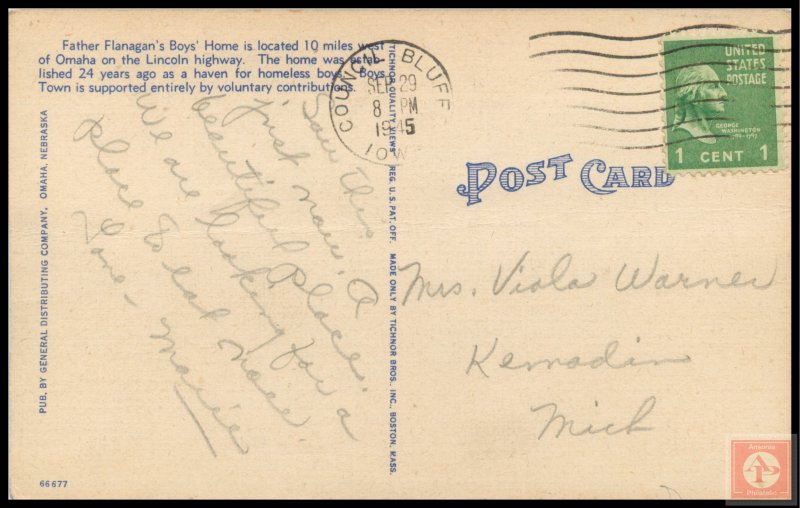 Father Flanagan's Boys' Home is located 10 miles west
of Omaha on the Lincoln highway. The home was estab-
lished 24 years ago as a haven for homeless boys. Boys
Town is supported entirely by voluntary contributions.
PUB. BY GENERAL DISTRIBUTING COMPANY, OMAHA, NEBRASKA
66677
Saw this
just now. A
beautiful place.
We are looking for a
place to eat now.
Love -
Marie
TICHNOR QUALITY VIEWS REG. U. S. PAT. OFF. MADE ONLY BY TICHNOR BROS., INC., BOSTON, MASS.
COUNCIL BLUFF
SEP 29
8 PM
1945
IOW
UNITED
STATES
POSTAGE
GEORGE
WASHINGTON
1789-1797
1 CENT 1
POST CARD
Mrs. Viola Warner
Kewadin
Mich
Ansonia
Philatelic